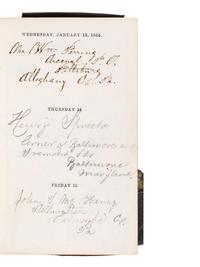 WEDNESDAY, JANUARY 13, 1864.
Mr Wm Perring
Arsenal P. O.
Pittsburg
Alleghany Co. Pa.
THURSDAY 14
Henry Specto
Corner of Baltimore and
Fremont Sts
Baltimore
Maryland
FRIDAY 15
John S. Mc Henry
Co
Pa